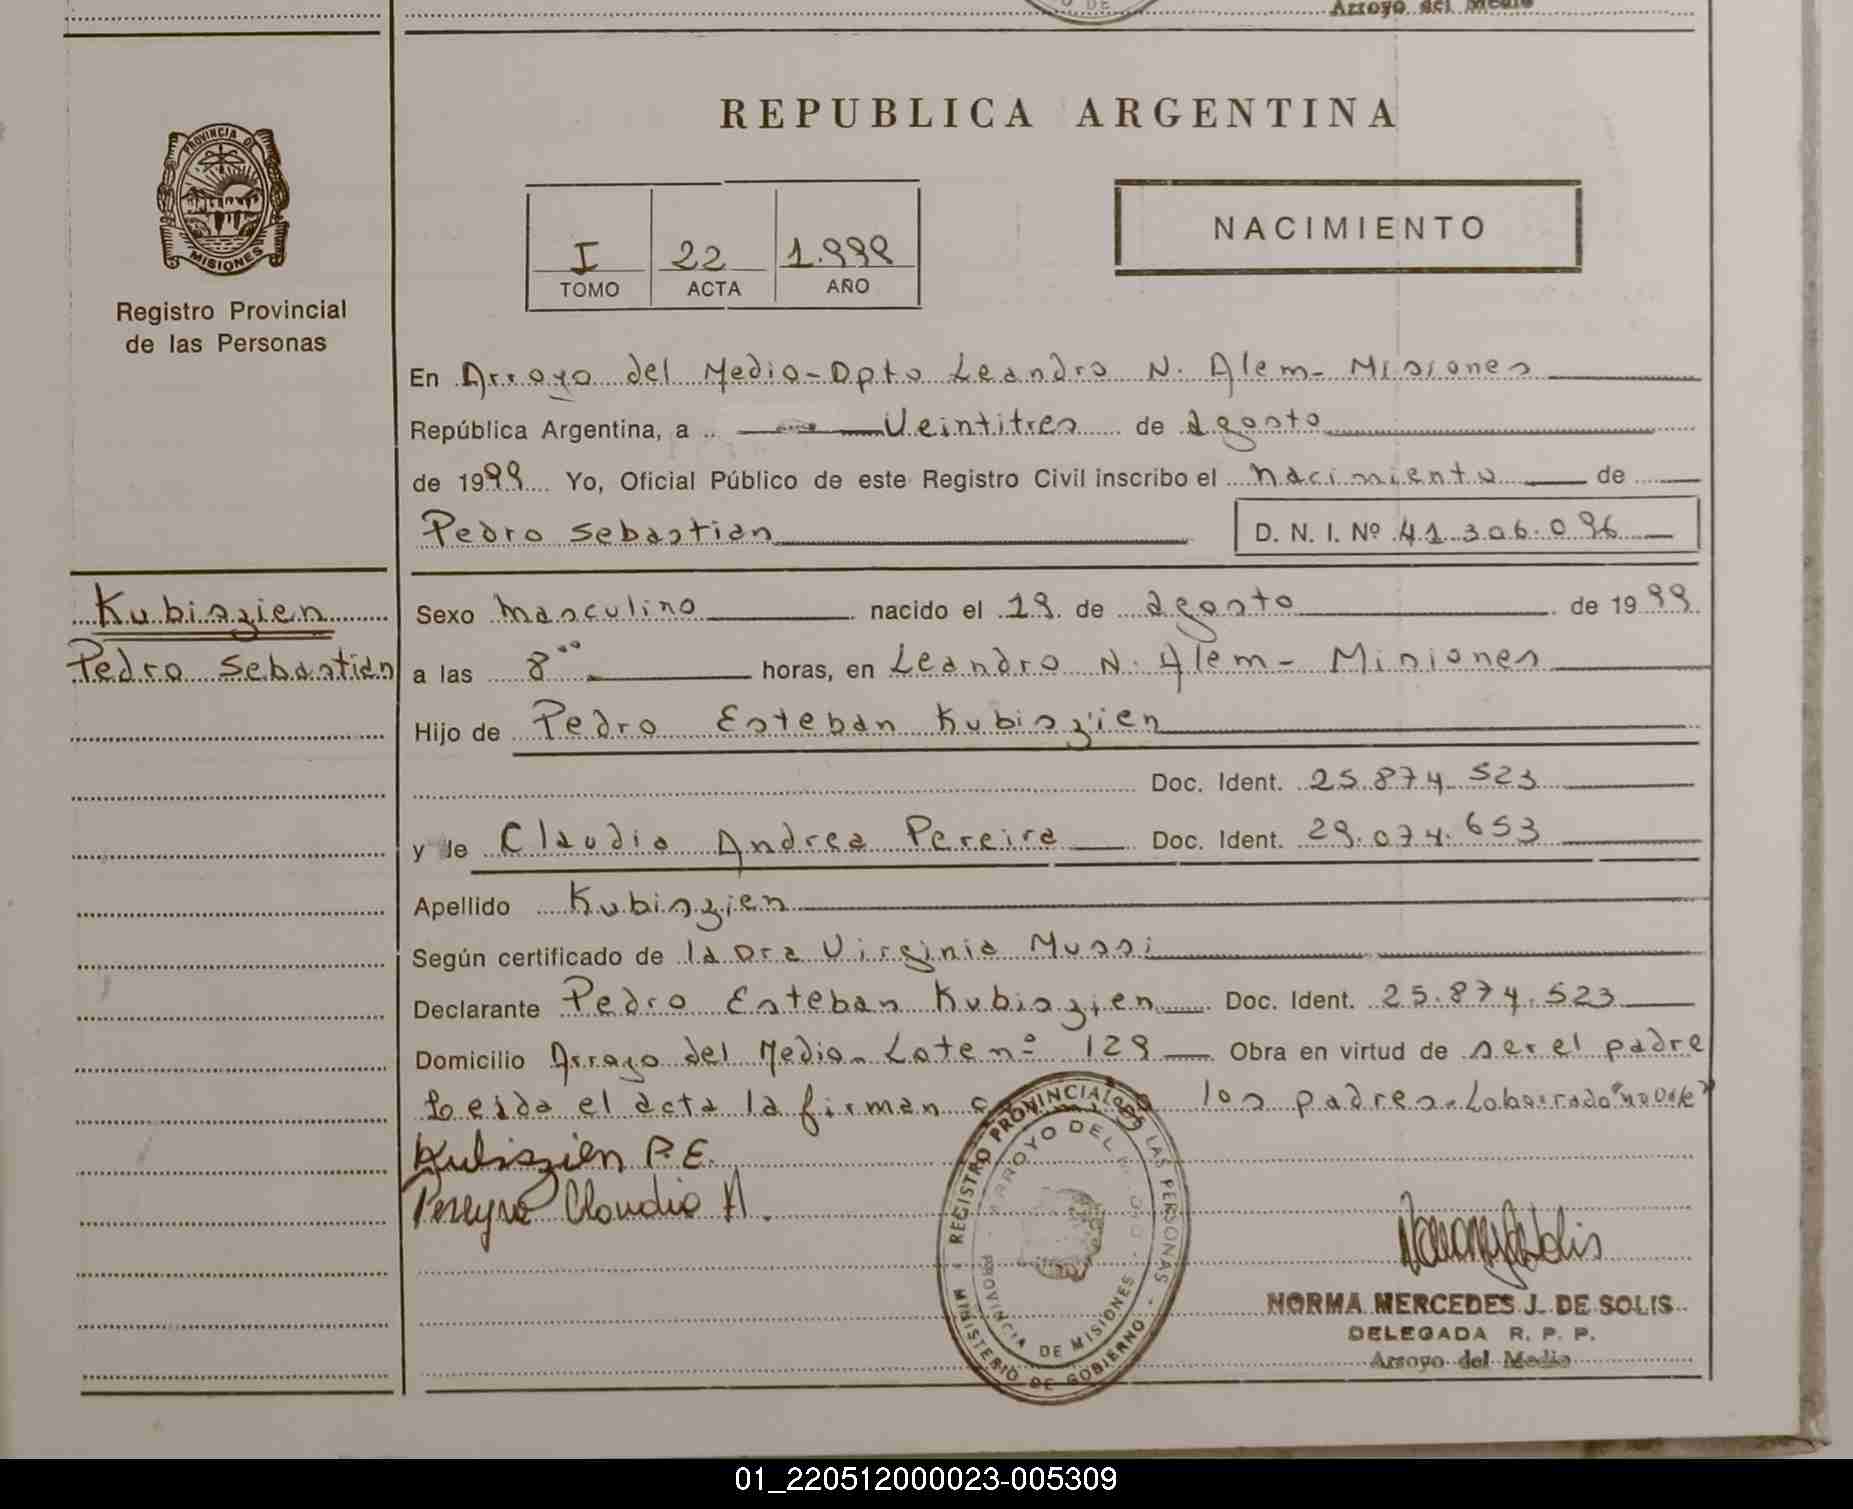 Arroyo del Medio
REPUBLICA ARGENTINA
PROVINCIA DE
MISIONES
Registro Provincial
de las Personas
NACIMIENTO
I 22 1.999
TOMO ACTA AÑO
En Arroyo del Medio - Dpto Leandro N. Alem - Misiones
República Argentina, a Veintitres de agosto
de 1999 Yo, Oficial Público de este Registro Civil inscribo el nacimiento de
Pedro Sebastian D. N. I. Nº 41.306.096
Kubiszien
Pedro Sebastian
Sexo masculino nacido el 19 de agosto de 1999
a las 8°° horas, en Leandro N. Alem - Misiones
Hijo de Pedro Esteban Kubiszien
Doc. Ident. 25.874.523
y de Claudia Andrea Pereira Doc. Ident. 29.074.653
Apellido Kubiszien
Según certificado de la Dra Virginia Mussi
Declarante Pedro Esteban Kubiszien Doc. Ident. 25.874.523
Domicilio Arroyo del Medio - Lote nº 129 Obra en virtud de ser el padre
Leida el acta la firman los padres - Lo borrado "no vale"
Kubiszien P.E.
Pereyra Claudia A.
REGISTRO PROVINCIAL DE LAS PERSONAS
ARROYO DEL MEDIO
PROVINCIA DE MISIONES
MINISTERIO DE GOBIERNO
NORMA MERCEDES J. DE SOLIS
DELEGADA R. P. P.
Arroyo del Medio
01_220512000023-005309